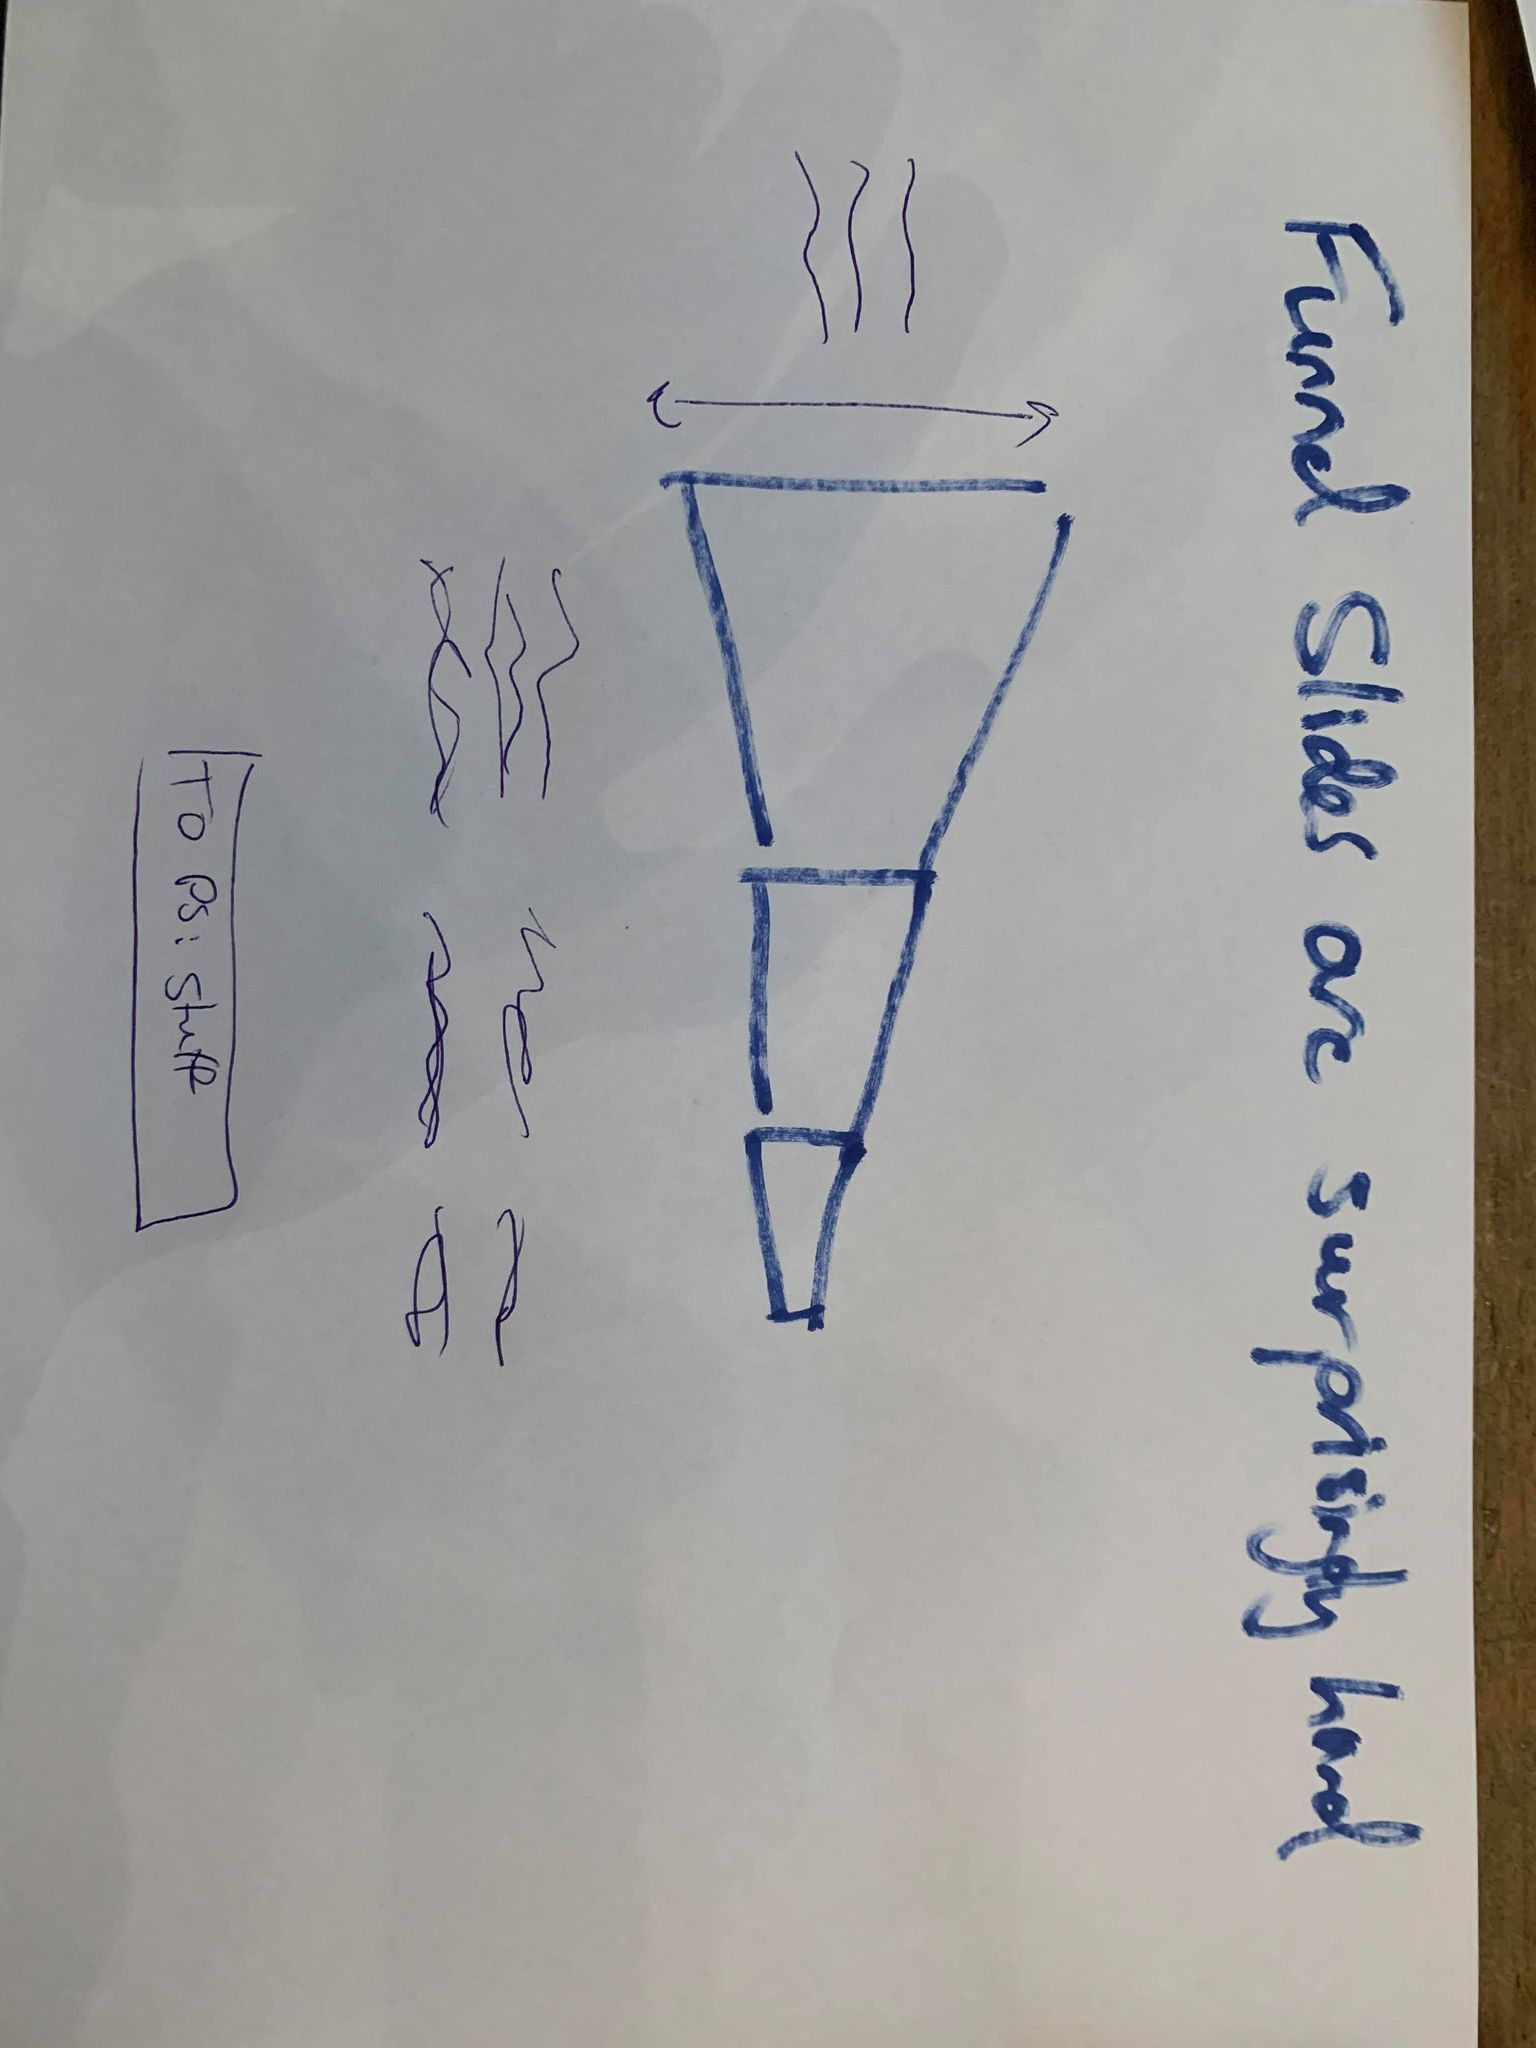 Funnel Slides are surprisingly hard
To Ps: Stuff